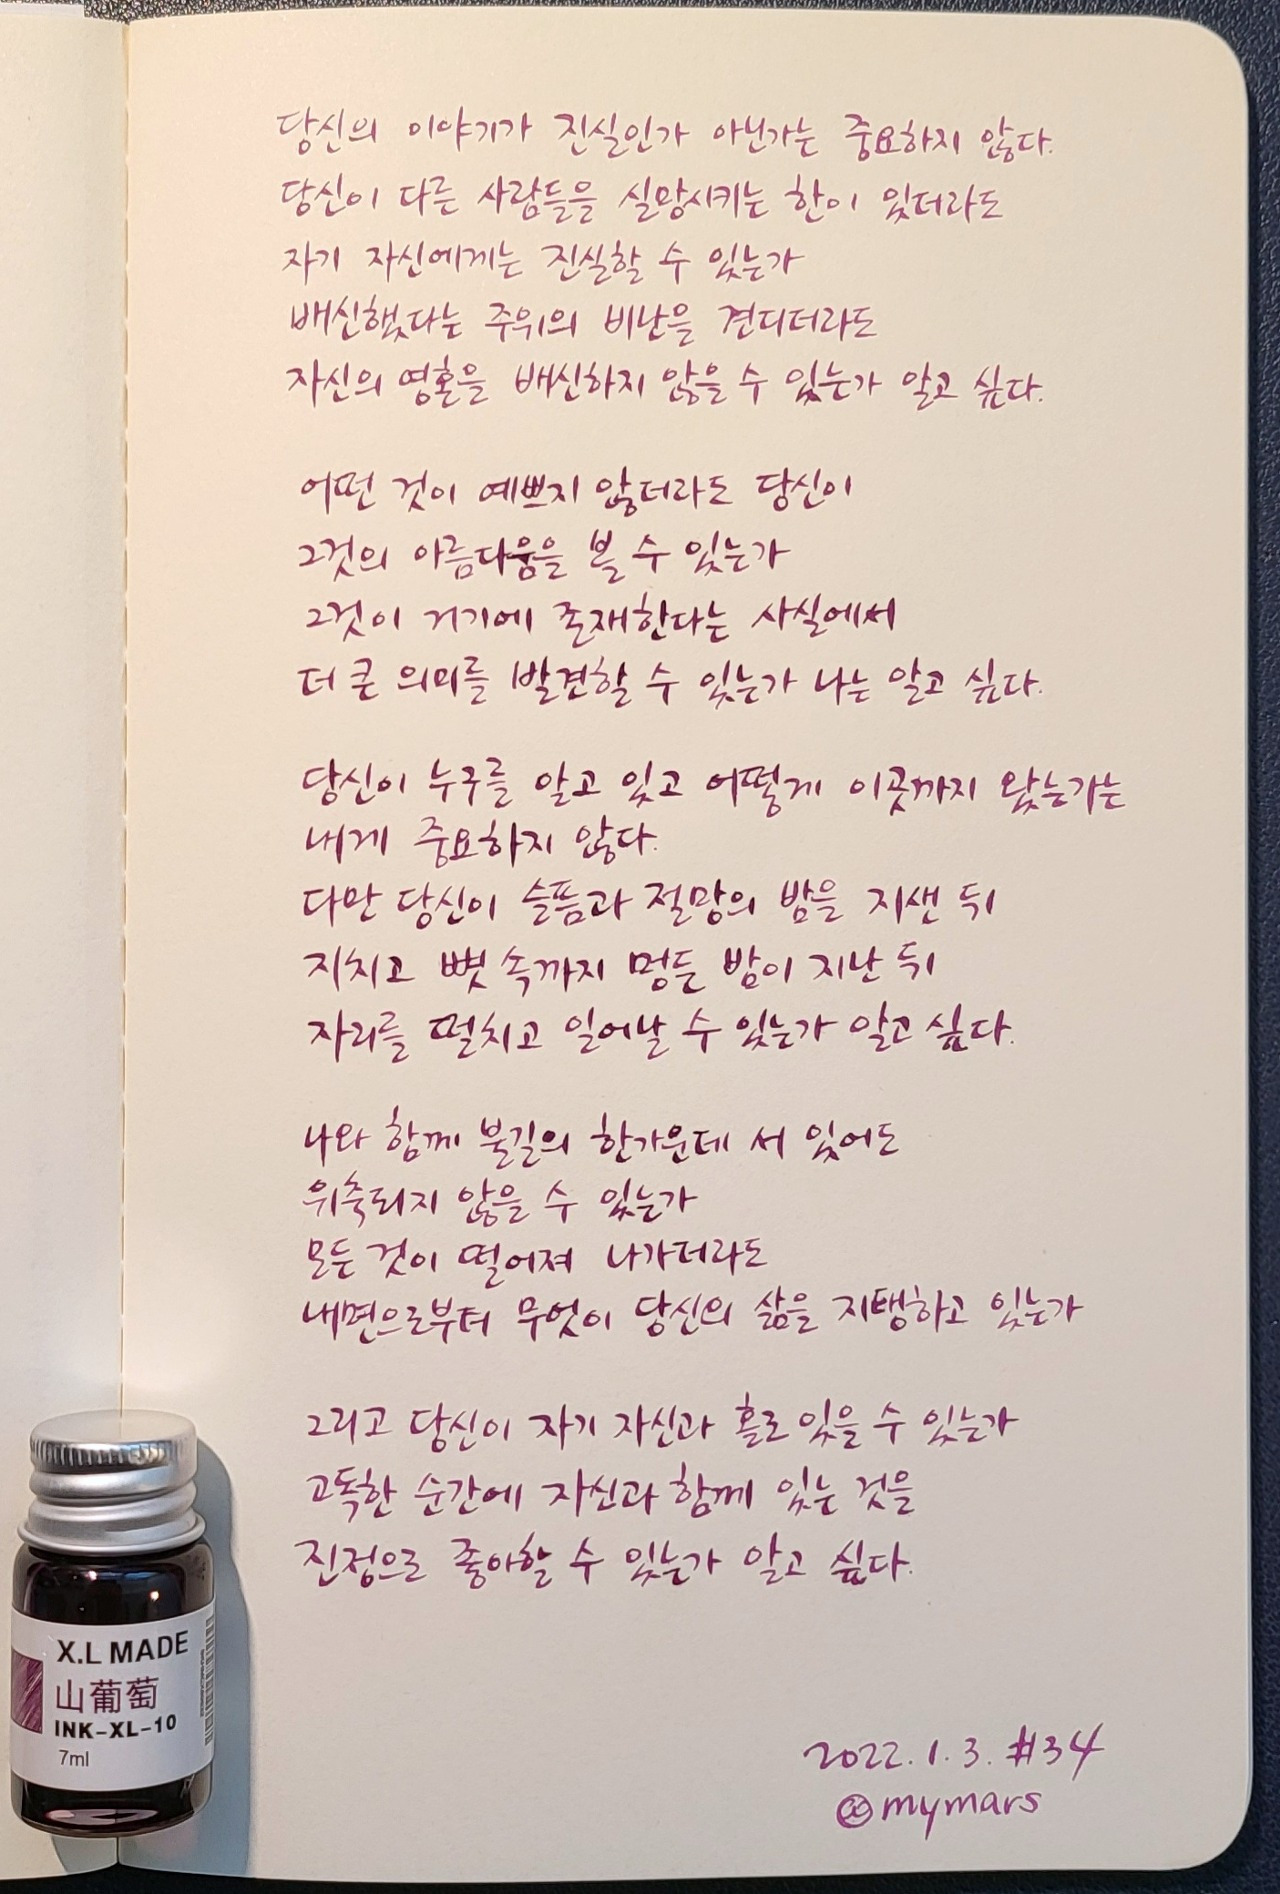 당신의 이야기가 진실인가 아닌가는 중요하지 않다.
당신이 다른 사람들을 실망시키는 한이 있더라도
자기 자신에게는 진실할 수 있는가
배신했다는 주위의 비난을 견디더라도
자신의 영혼을 배신하지 않을 수 있는가 알고 싶다.
어떤 것이 예쁘지 않더라도 당신이
그것의 아름다움을 볼 수 있는가
그것이 거기에 존재한다는 사실에서
더 큰 의미를 발견할 수 있는가 나는 알고 싶다.
당신이 누구를 알고 있고 어떻게 이곳까지 왔는가는
내게 중요하지 않다.
다만 당신이 슬픔과 절망의 밤을 지샌 뒤
지치고 뼛 속까지 멍든 밤이 지난 뒤
자리를 떨치고 일어날 수 있는가 알고 싶다.
나와 함께 불길의 한가운데 서 있어도
위축되지 않을 수 있는가
모든 것이 떨어져 나가더라도
내면으로부터 무엇이 당신의 삶을 지탱하고 있는가
그리고 당신이 자기 자신과 홀로 있을 수 있는가
고독한 순간에 자신과 함께 있는 것을
진정으로 좋아할 수 있는가 알고 싶다.
2022.1.3. #34
mymars
X.L MADE
山葡萄
INK-XL-10
7ml